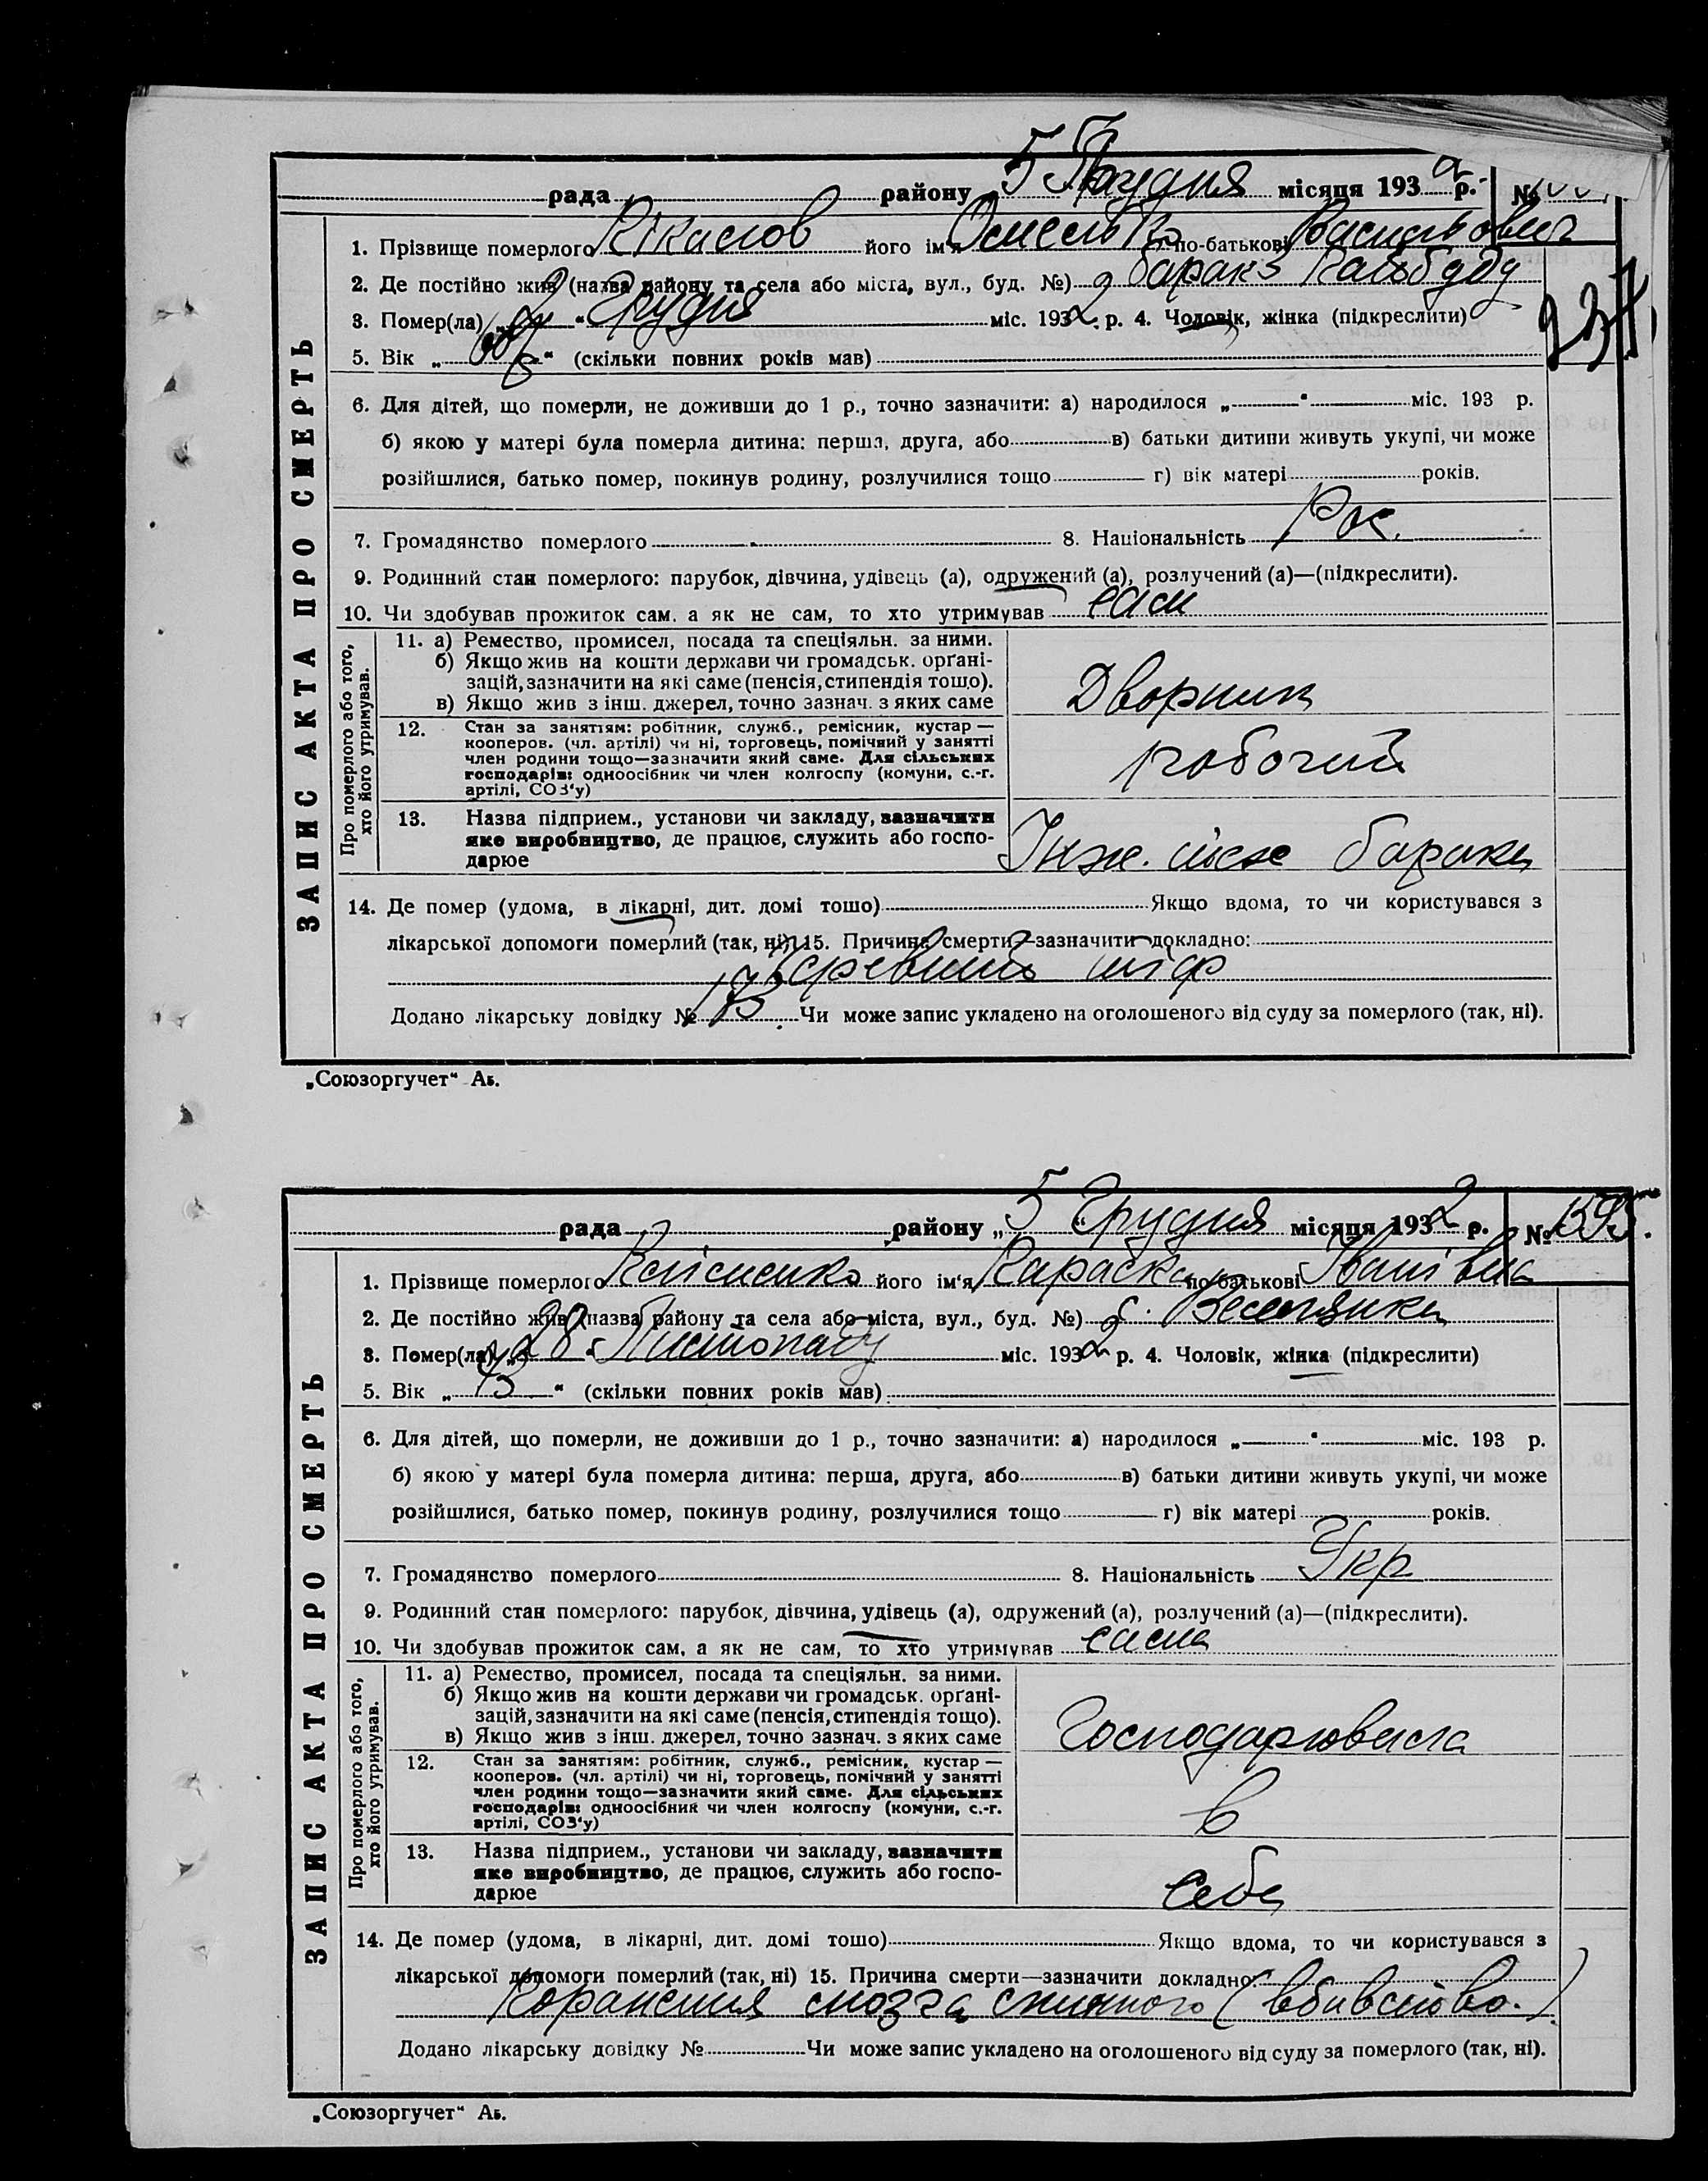 рада району „5 Грудня місяця 1932 р. №
1. Прізвище померлого його ім'я Омелько по-батькові Васильович
2. Де постійно жив (назва району та села або міста, вул., буд. №) барак
3. Помер(ла) „ “ Грудня міс. 1932 р. 4. Чоловік, жінка (підкреслити)
237
5. Вік „ “ (скільки повних років мав)
6. Для дітей, що померли, не доживши до 1 р., точно зазначити: а) народилося „ “ міс. 193 р.
б) якою у матері була померла дитина: перша, друга, або в) батьки дитини живуть укупі, чи може
розійшлися, батько помер, покинув родину, розлучилися тощо г) вік матері років.
7. Громадянство померлого 8. Національність Рос.
9. Родинний стан померлого: парубок, дівчина, удівець (а), одружений (а), розлучений (а)—(підкреслити).
10. Чи здобував прожиток сам, а як не сам, то хто утримував сам
ЗАПИС АКТА ПРО СМЕРТЬ
Про померлого або того, хто його утримував.
11. а) Ремество, промисел, посада та спеціяльн. за ними.
б) Якщо жив на кошти держави чи громадськ. орґані-
зацій, зазначити на які саме (пенсія, стипендія тощо).
в) Якщо жив з інш. джерел, точно зазнач. з яких саме
Дворник
12. Стан за занятіям: робітник, служб., ремісник, кустар —
кооперов. (чл. артілі) чи ні, торговець, помічний у занятті
член родини тощо—зазначити який саме. Для сільських
господарів: одноосібник чи член колгоспу (комуни, с.-г.
артілі, СОЗ'у)
робочий
13. Назва підприєм., установи чи закладу, зазначити
яке виробництво, де працює, служить або госпо-
дарює
Інж. бараки
14. Де помер (удома, в лікарні, дит. домі тощо) Якщо вдома, то чи користувався з
лікарської допомоги померлий (так, ні) 15. Причина смерти—зазначити докладно:
Черевний тіф
Додано лікарську довідку № 173 Чи може запис укладено на оголошеного від суду за померлого (так, ні).
„Союзоргучет“ Аб.
рада району „5 “ Грудня місяця 1932 р. № 1395.
1. Прізвище померлого Клименко його ім'я Параска по-батькові Іванівна
2. Де постійно жив (назва району та села або міста, вул., буд. №) с. Веселянка
3. Помер(ла) „28 “ Листопаду міс. 1932 р. 4. Чоловік, жінка (підкреслити)
5. Вік „ “ (скільки повних років мав)
6. Для дітей, що померли, не доживши до 1 р., точно зазначити: а) народилося „ “ міс. 193 р.
б) якою у матері була померла дитина: перша, друга, або в) батьки дитини живуть укупі, чи може
розійшлися, батько помер, покинув родину, розлучилися тощо г) вік матері років.
7. Громадянство померлого 8. Національність Укр
9. Родинний стан померлого: парубок, дівчина, удівець (а), одружений (а), розлучений (а)—(підкреслити).
10. Чи здобував прожиток сам, а як не сам, то хто утримував сама
ЗАПИС АКТА ПРО СМЕРТЬ
Про померлого або того, хто його утримував.
11. а) Ремество, промисел, посада та спеціяльн. за ними.
б) Якщо жив на кошти держави чи громадськ. орґані-
зацій, зазначити на які саме (пенсія, стипендія тощо).
в) Якщо жив з інш. джерел, точно зазнач. з яких саме
Господарювала
12. Стан за занятіям: робітник, служб., ремісник, кустар —
кооперов. (чл. артілі) чи ні, торговець, помічний у занятті
член родини тощо—зазначити який саме. Для сільських
господарів: одноосібник чи член колгоспу (комуни, с.-г.
артілі, СОЗ'у)
в
13. Назва підприєм., установи чи закладу, зазначити
яке виробництво, де працює, служить або госпо-
дарює
себе
14. Де помер (удома, в лікарні, дит. домі тощо) Якщо вдома, то чи користувався з
лікарської допомоги померлий (так, ні) 15. Причина смерти—зазначити докладно:
мозга спинного (вбивство.)
Додано лікарську довідку № Чи може запис укладено на оголошеного від суду за померлого (так, ні).
„Союзоргучет“ Аб.